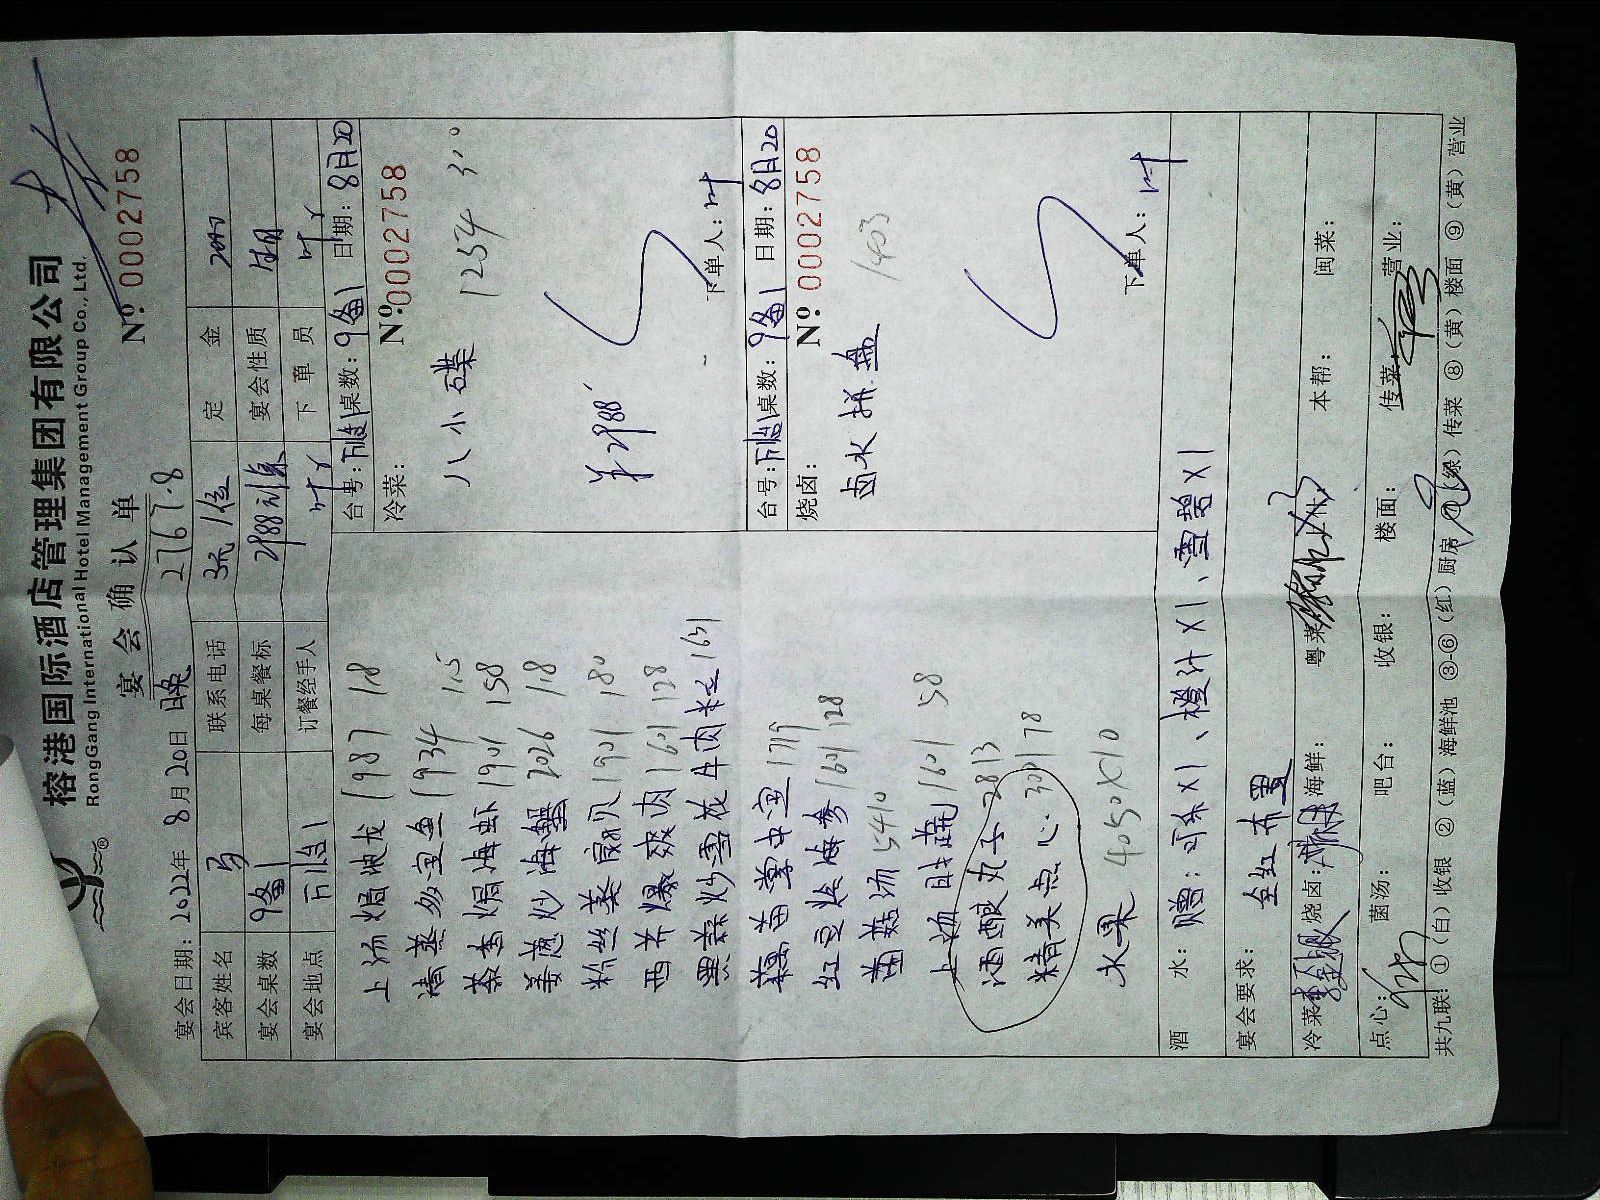 榕港国际酒店管理集团有限公司
RongGang International Hotel Management Group Co., Ltd.
宴会确认单
2767.8
№:0002758
宴会日期: 2022年 8月20日 晚
宾客姓名 马 联系电话 定金 2000
宴会桌数 9备1 每桌餐标 2988 宴会性质
宴会地点 订餐经手人 叶 下单员 叶
上汤焗地龙 1987
清蒸多宝鱼 1934
茶香焗海虾 1901 158
姜葱炒海蟹 2026 118
粉丝蒸扇贝 1901 180
西芹爆爽肉 1601 128
黑蒜炒雪花牛肉粒 1631
1719
红豆烩海参 1601 128
菌菇汤 15410
上汤时蔬 1601 58
酒酿丸子 2813
精美点心 3001 78
水果 4050X10
台号: 桌数: 9备1 日期: 8月20
冷菜: №:0002758
八小碟 1254
2988
下单人: 叶
台号: 桌数: 9备1 日期: 8月20
烧卤: №:0002758
卤水拼盘 1403
下单人: 叶
酒水: 赠: 可乐X1、橙汁X1、雪碧X1
宴会要求: 全红布置
冷菜 烧卤: 海鲜: 粤菜 本帮: 闽菜:
点心: 菌汤: 吧台: 收银: 楼面: 传菜: 营业:
共九联: ①(白)收银 ②(蓝)海鲜池 ③-⑥(红)厨房 ⑦(绿)传菜 ⑧(黄)楼面 ⑨(黄)营业